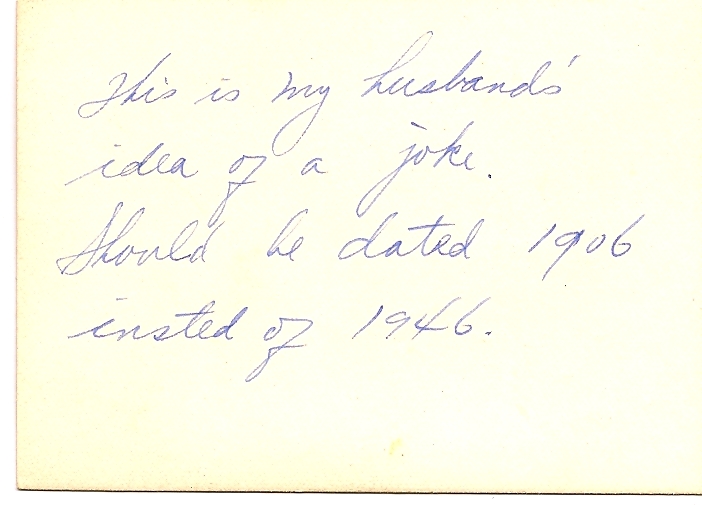 This is my husband's
idea of a joke.
Should be dated 1906
insted of 1946.